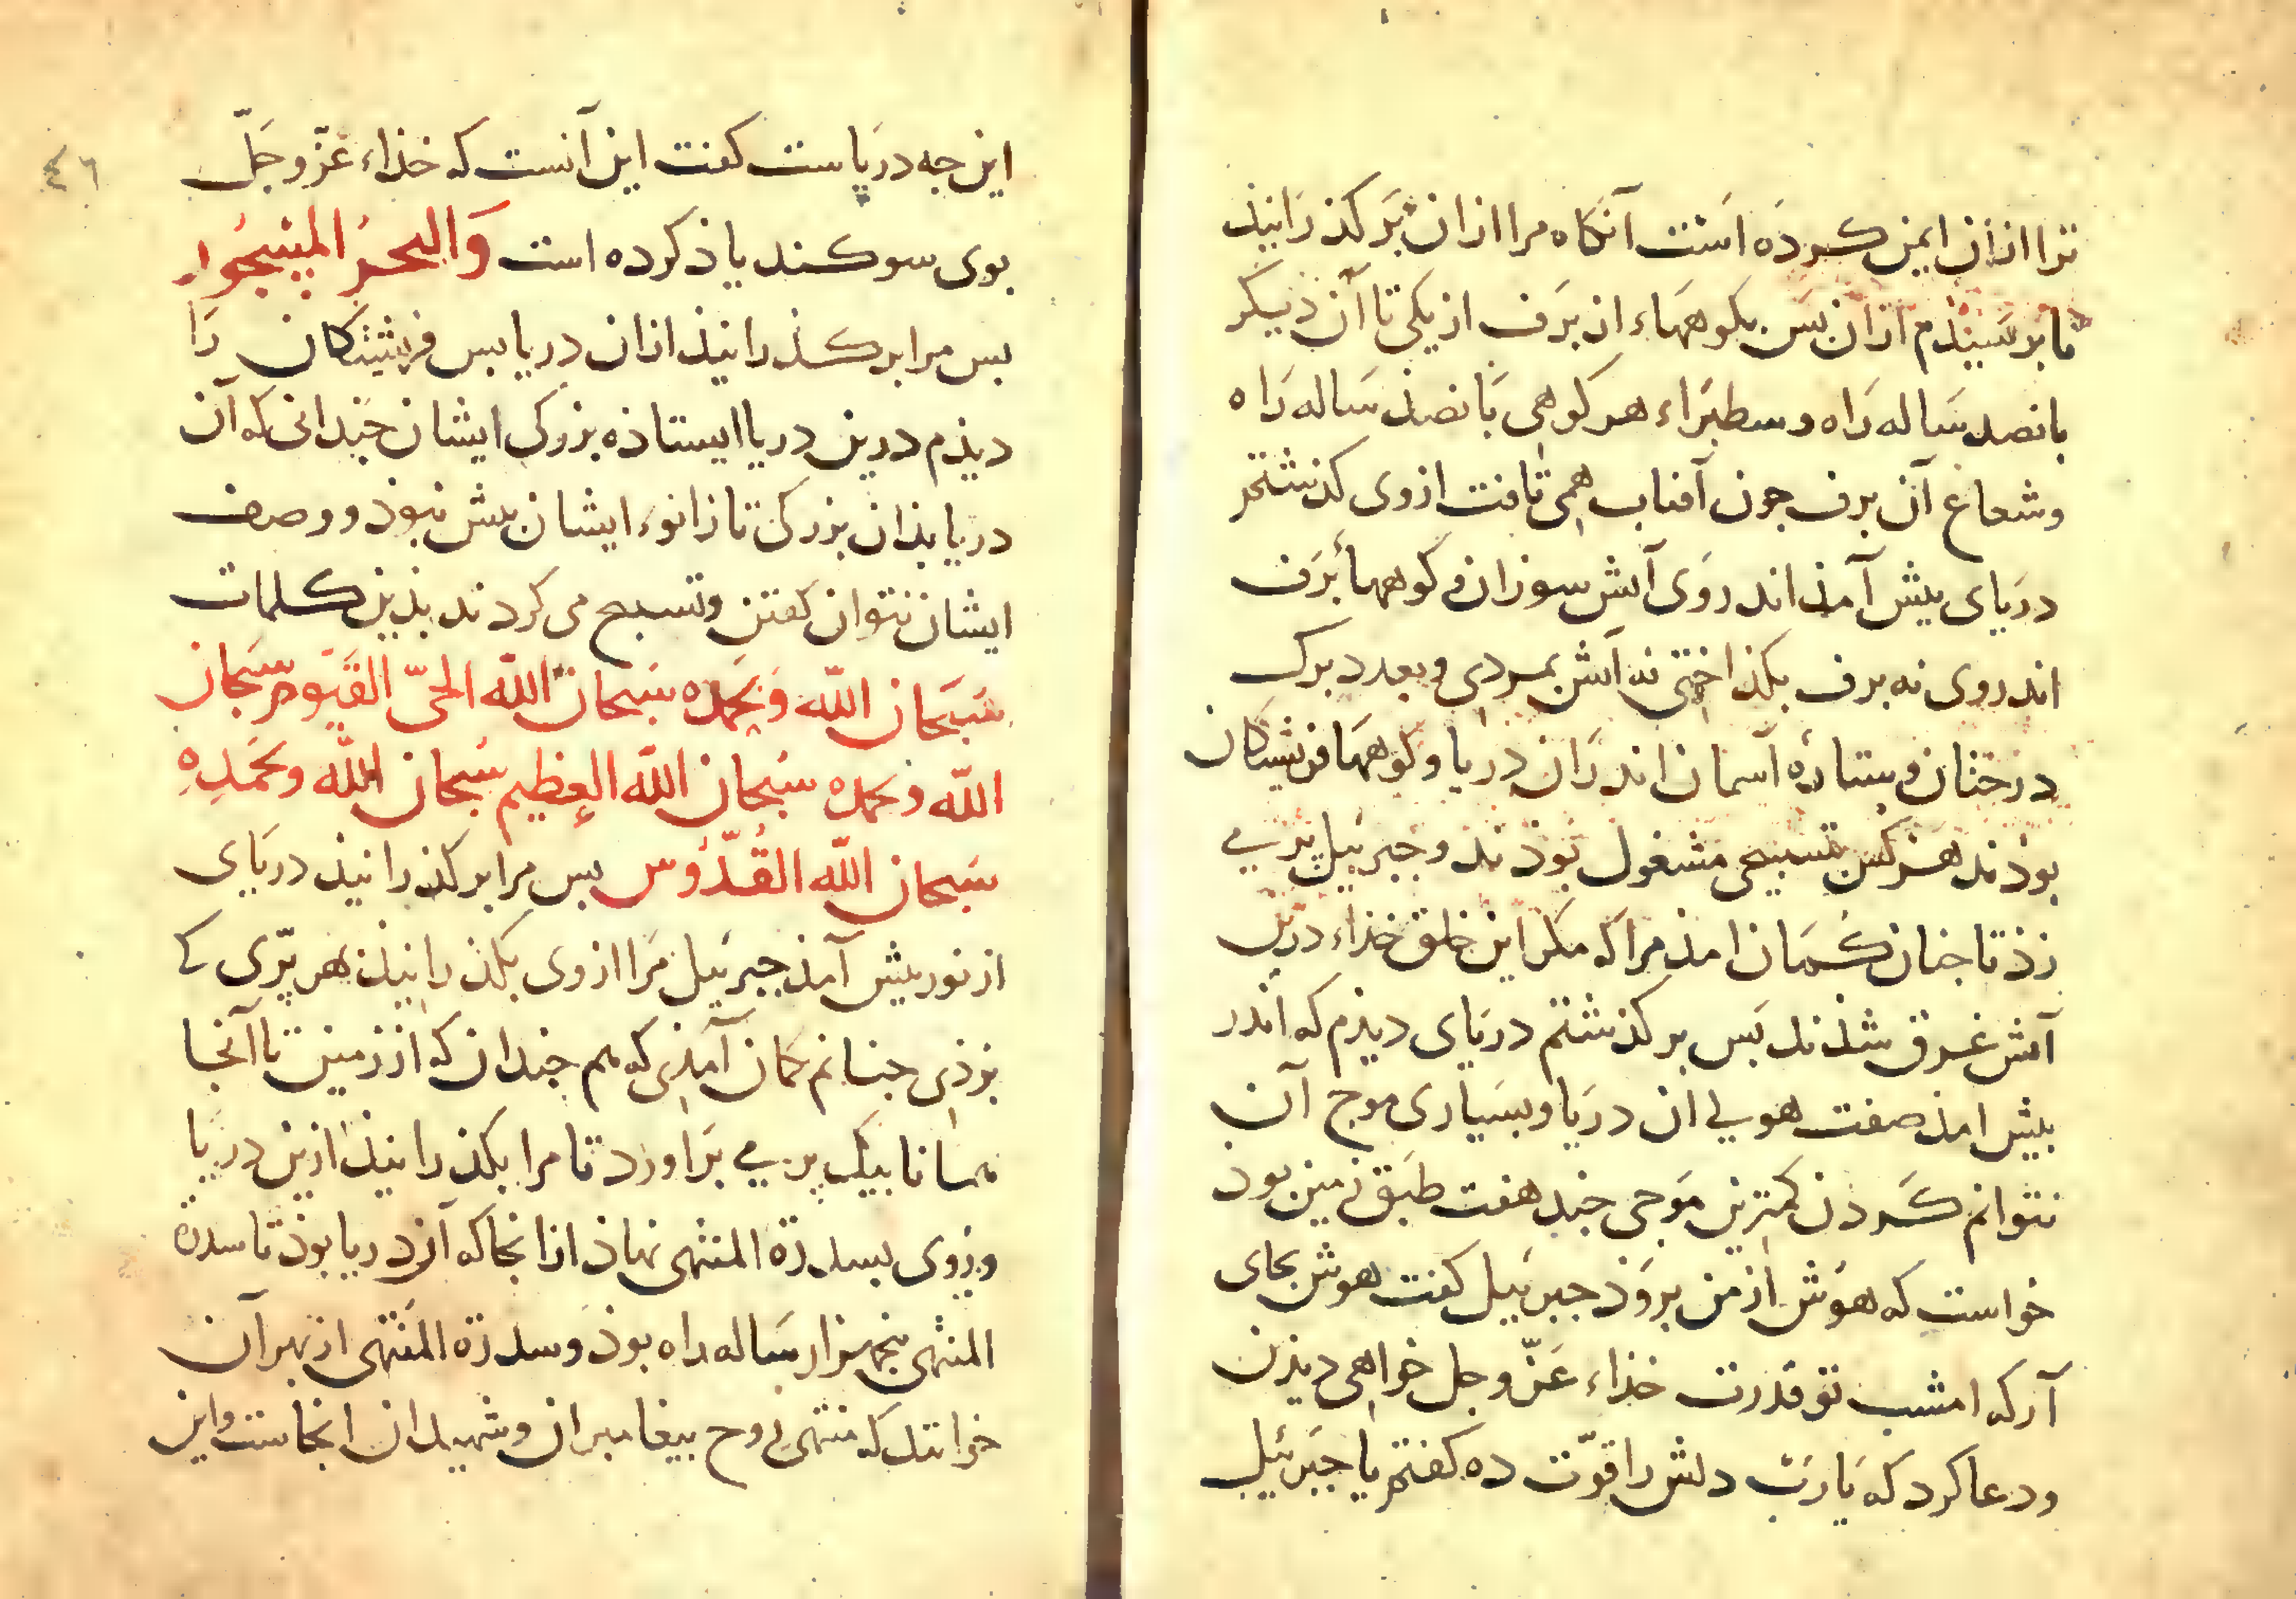 ترا ازان ایمن کرده است آنکاه مرا ازان بر کذرانیذ
تا برسیذم ازان بس بکوههاء از برف از یکی تا آن دیکر
بانصد ساله راه وسطبراء هر کوهی بانصذ ساله راه
وشعاع آن برف جون آفتاب همی تافت ازوی کذشتم
دریای بیش آمذ اندروی آتش سوزان و کوههاء برف
اندروی نه برف بکذاختی نه آتش بمردی وبعدد برک
درختان وستاره آسمان اندران دریا وکوهها فریشتکان
بوذند هر کس بتسبیحی مشغول بوذند وجبرئیل پر می
زذ تا جنان کمان امذ مرا که مکر این خلق خذاء درین
آتش غرق شذند بس بر کذشتم دریای دیذم که اندر
بیش امذ صفت هولی ان دریا وبسیاری موج آن
نتوانم کردن کمترین موجی جند هفت طبق زمین بود
خواست که هوش از من بروذ جبرئیل کفت هوش بجای
آر که امشب تو قدرت خذاء عزّ وجل خواهی دیذن
ودعا کرد که یا ربّ دلش را قوّت ده کفتم یا جبرئیل
٤٦
این جه دریاست کفت این آنست که خذاء عزّ وجلّ
بوی سوکند یاذ کرده است والبحر المسجور
بس مرا بر کذرانیذ ازان دریا بس فریشتکان را
دیذم درین دریا ایستاذه بزرکی ایشان جندانی که آن
دریا بذان بزرکی تا زانوء ایشان بیش نبوذ ووصف
ایشان نتوان کفتن وتسبیح می کردند بذین کلمات
سبحان اللّه وبحمده سبحان اللّه الحیّ القیّوم سبحان
اللّه وبحمده سبحان اللّه العظیم سبحان اللّه وبحمده
سبحان اللّه القدّوس بس مرا بر کذرانیذ دریای
از نور بیش آمذ جبرئیل مرا ازوی بکذرانیذ هر پرّی که
بزذی جنانم کمان آمذی که هم جندان که از زمین تا آنجا
همانا بیک پر می براورد تا مرا بکذرانیذ ازین دریا
وروی بسدرة المنتهی نهاذ ازانجا که آن دریا بوذ تا سدرة
المنتهی بنجهزار ساله راه بوذ وسدرة المنتهی از بهر آن
خوانند که منتهی روح بیغامبران وشهیدان انجاست واین